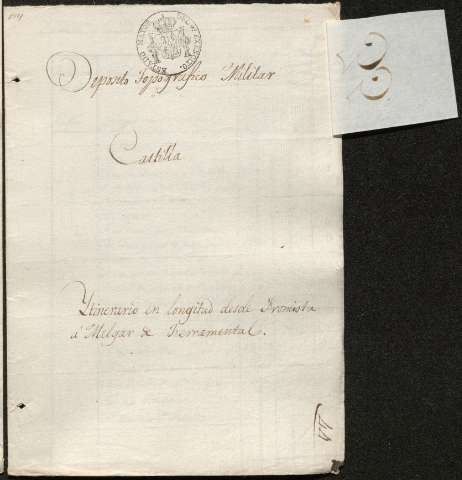 Deposito Topografico Militar
Castilla
Ytinerario en longitud desde Fromista
á Melgar de Ferramental.